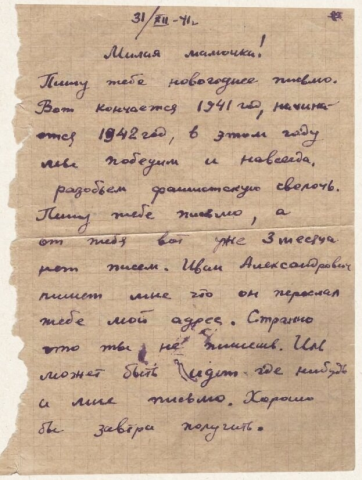 31/XII-41г.
Милая мамочка!
Пишу тебе новогоднее письмо.
Вот кончается 1941 год, начина-
ется 1942 год, в этом году
мы победим и навсегда,
разобьем фашистскую сволочь.
Пишу тебе письмо, а
от тебя вот уже 3 месяца
нет писем. Иван Александрович
пишет мне что он переслал
тебе мой адрес. Странно
что ты не пишешь. Или
может быть идет где нибудь
и мне письмо. Хорошо
бы завтра получить.